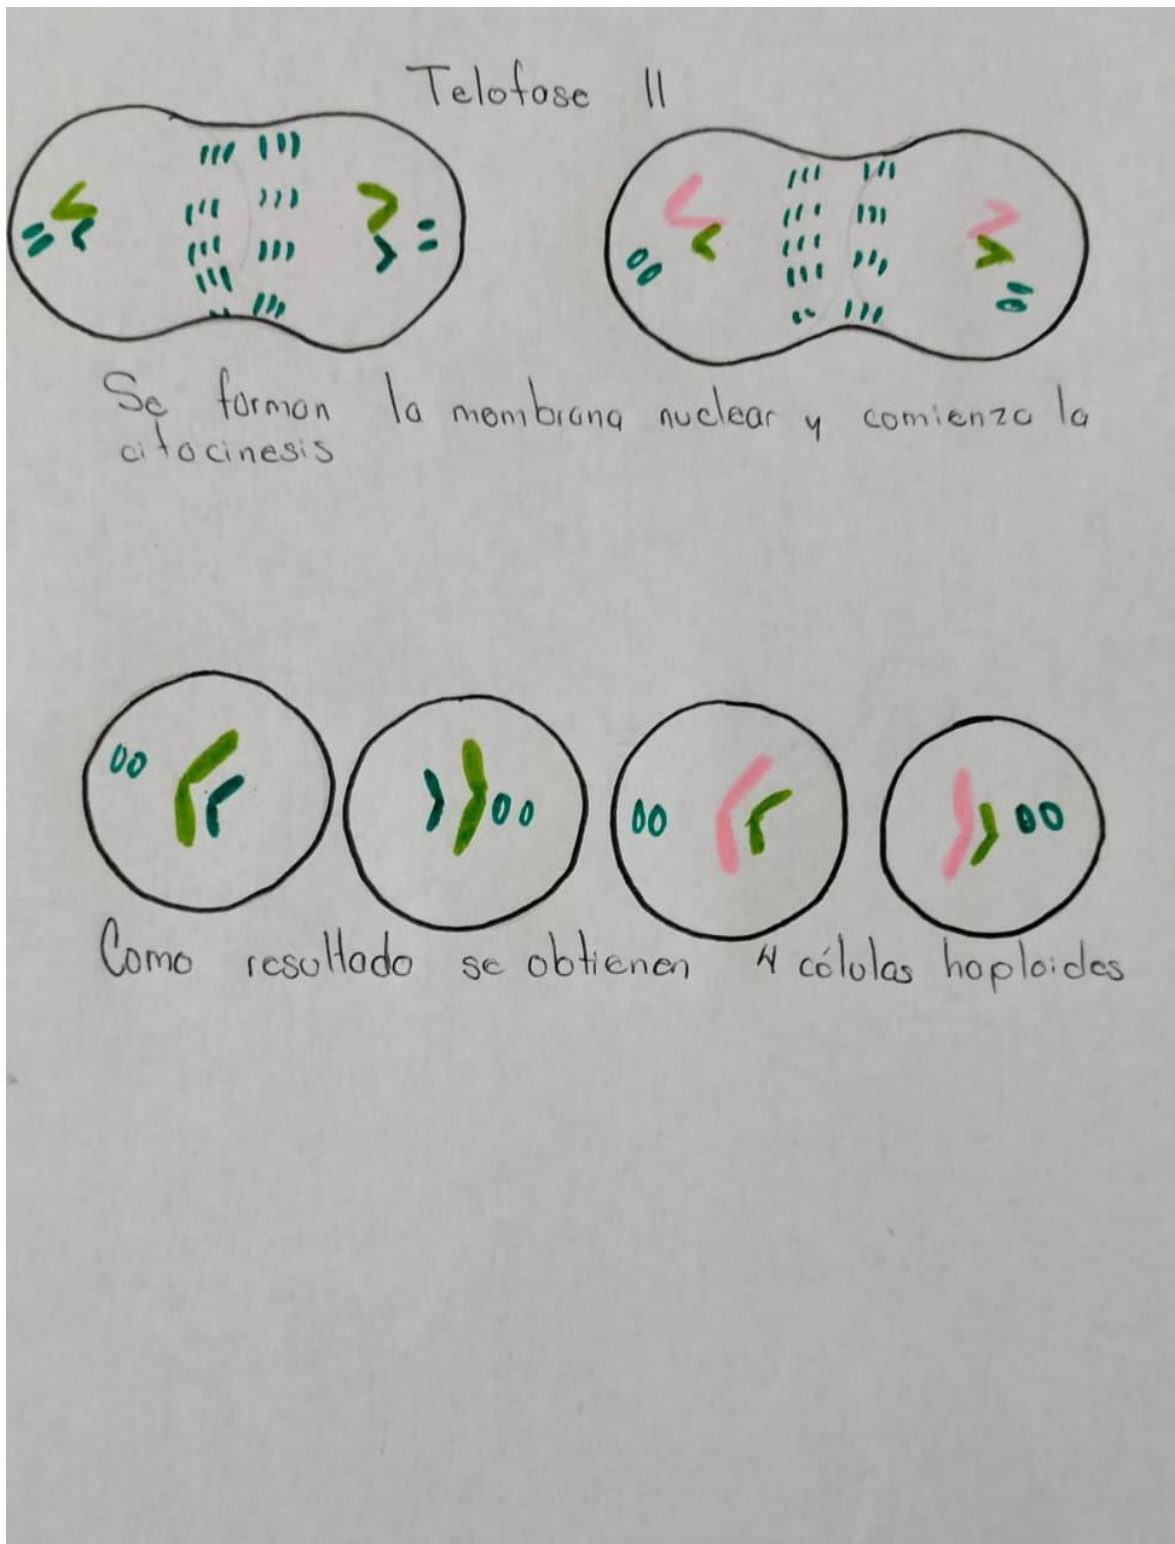 Telofase II
Se forman la membrana nuclear y comienza la
citocinesis
Como resultado se obtienen 4 células haploides